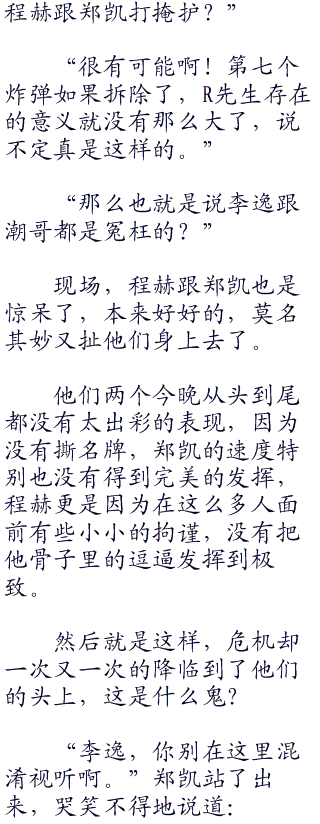 程赫跟郑凯打掩护？”
“很有可能啊！第七个
炸弹如果拆除了，R先生存在
的意义就没有那么大了，说
不定真是这样的。”
“那么也就是说李逸跟
潮哥都是冤枉的？”
现场，程赫跟郑凯也是
惊呆了，本来好好的，莫名
其妙又扯他们身上去了。
他们两个今晚从头到尾
都没有太出彩的表现，因为
没有撕名牌，郑凯的速度特
别也没有得到完美的发挥，
程赫更是因为在这么多人面
前有些小小的拘谨，没有把
他骨子里的逗逼发挥到极
致。
然后就是这样，危机却
一次又一次的降临到了他们
的头上，这是什么鬼？
“李逸，你别在这里混
淆视听啊。”郑凯站了出
来，哭笑不得地说道：